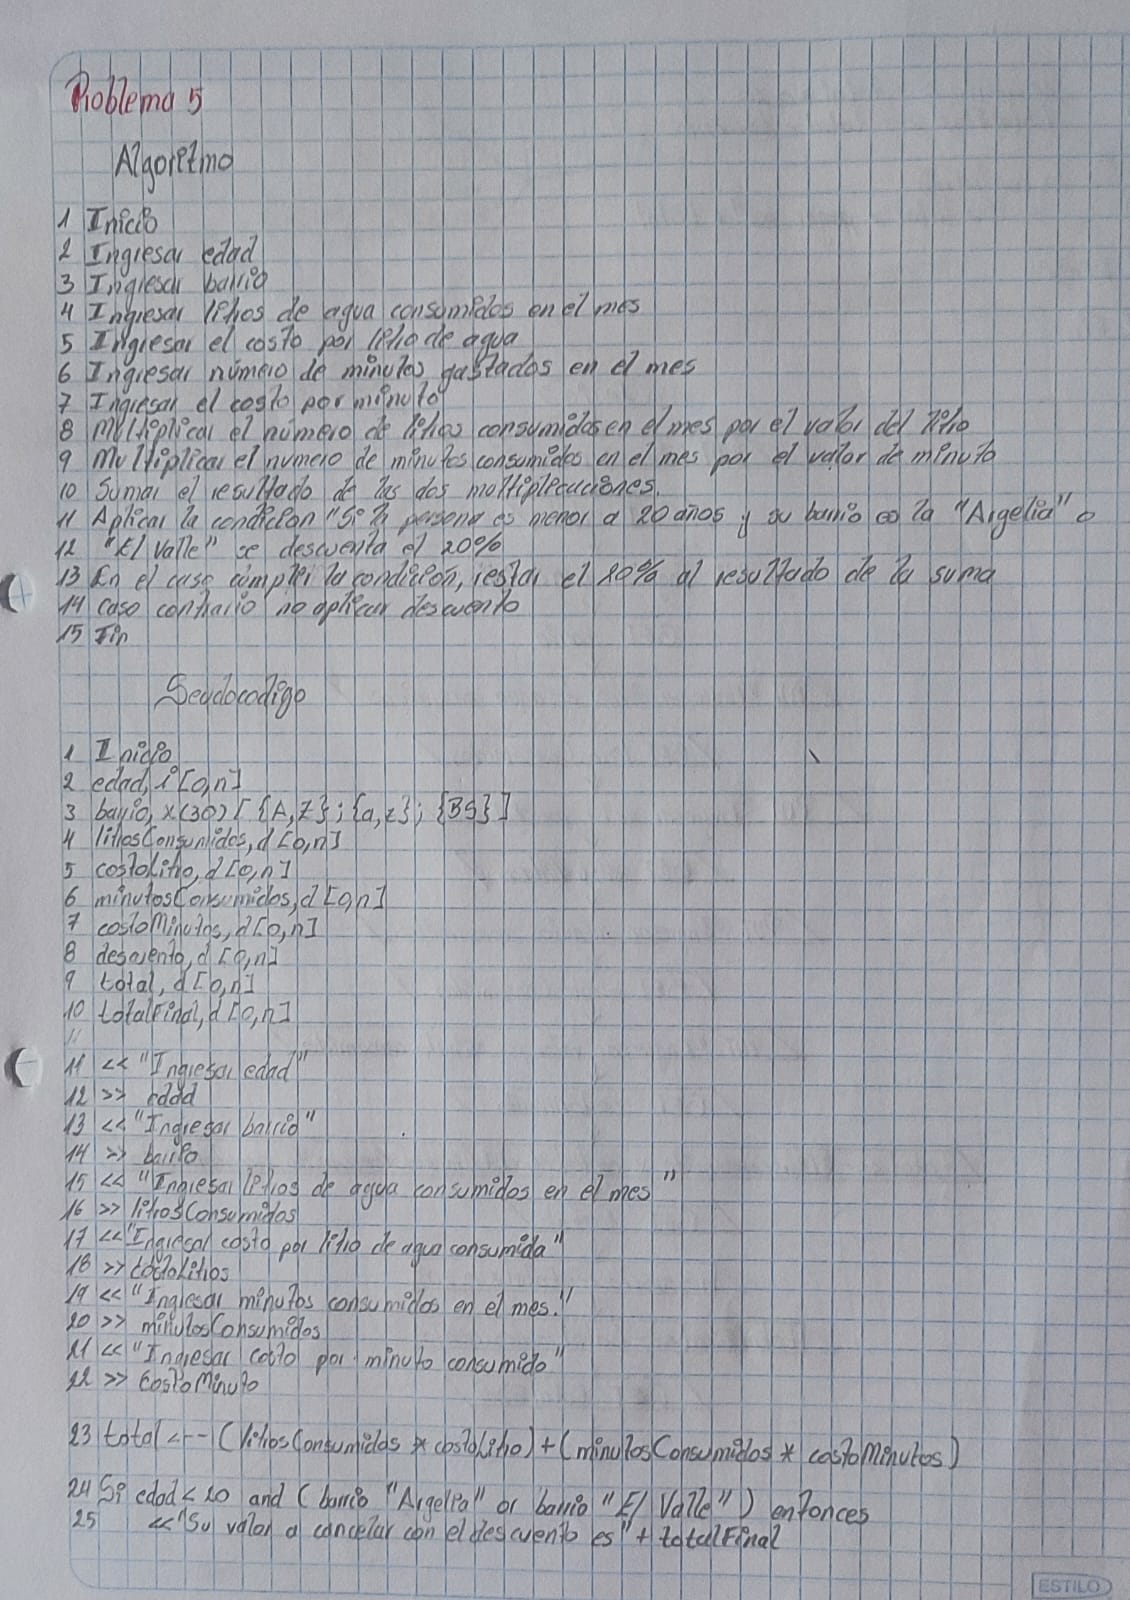 Problema 5
Algoritmo
1 Inicio
2 Ingresar edad
3 Ingresar barrio
4 Ingresar litros de agua consumidos en el mes
5 Ingresar el costo por litro de agua
6 Ingresar número de minutos gastados en el mes
7 Ingresar el costo por minuto
8 Multiplicar el número de litros consumidos en el mes por el valor del litro
9 Multiplicar el numero de minutos consumidos en el mes por el valor de minuto
10 Sumar el resultado de las dos moltiplicaciones.
11 Aplicar la condición "Si la persona es menor a 20 años y su barrio es la "Argelia" o
12 "El Valle" se descuenta el 20%
13 En el caso cumplir la condición, restar el 20% al resultado de la suma
14 caso contrario no aplicar descuento
15 Fin
Seudocodigo
1 Inicio
2 edad, i [0,n]
3 barrio, x(30) [ {A,Z} ; {a,z} ; {BS} ]
4 litrosConsumidos, d [0,n]
5 costoLitro, d [0,n]
6 minutosConsumidos, d [0,n]
7 costoMinutos, d [0,n]
8 descuento, d [0,n]
9 total, d [0,n]
10 totalFinal, d [0,n]
11
11 << "Ingresar edad"
12 >> edad
13 << "Ingresar barrio"
14 >> barrio
15 << "Ingresar litros de agua consumidos en el mes"
16 >> litrosConsumidos
17 << "Ingresar costo por litro de agua consumida"
18 >> costoLitros
19 << "Ingresar minutos consumidos en el mes."
20 >> minutosConsumidos
21 << "Ingresar costo por minuto consumido"
22 >> costoMinuto
23 total <-- (litrosConsumidos * costoLitro) + (minutosConsumidos * costoMinutos)
24 Si edad < 20 and (barrio "Argelia" or barrio "El Valle") entonces
25 << "Su valor a cancelar con el descuento es" + totalFinal
ESTILO